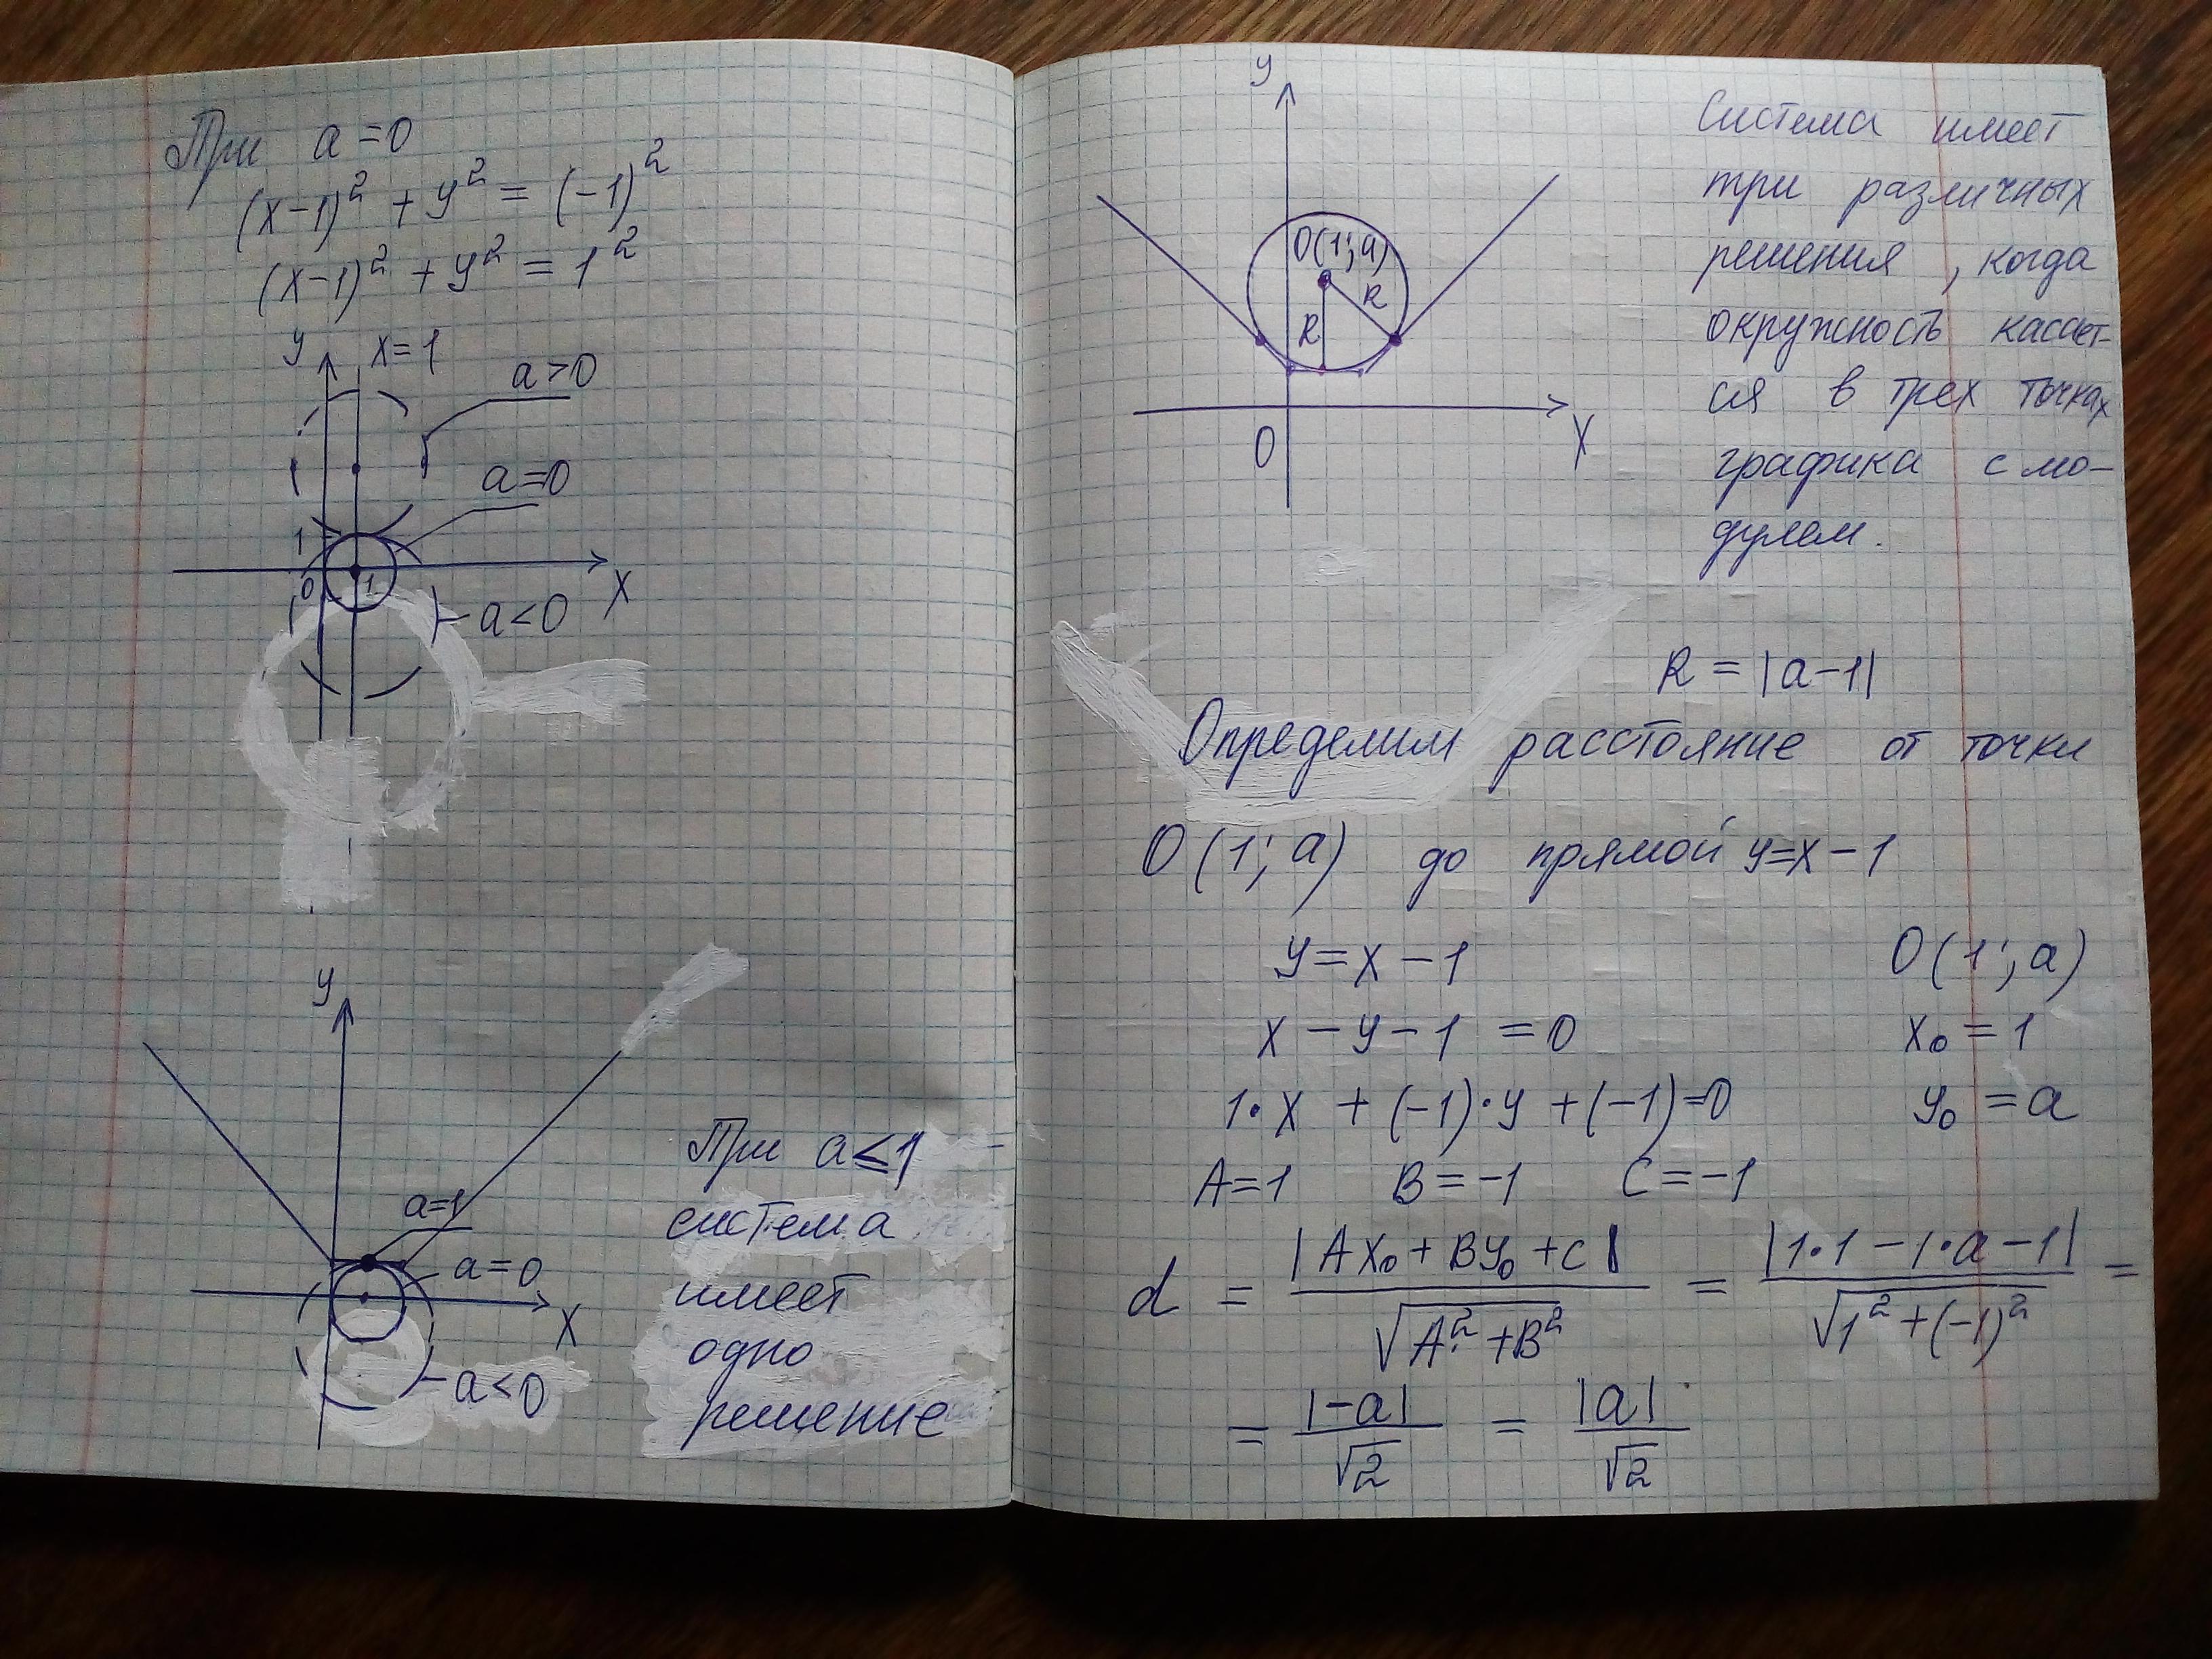 При a=0
(x-1)² + y² = (-1)²
(x-1)² + y² = 1²
y
x=1
a>0
a=0
1
0
1
x
a<0
y
a=1
a=0
x
a<0
При a≤1
система
имеет
одно
решение
y
O(1;a)
R
R
0
x
Система имеет
три различных
решения, когда
окружность касает-
ся в трех точках
графика с мо-
дулем.
R = |a-1|
Определим расстояние от точки
O(1;a) до прямой y=x-1
y=x-1
O(1;a)
x-y-1=0
x₀=1
1·x+(-1)·y+(-1)=0
y₀=a
A=1 B=-1 C=-1
d = |Ax₀+By₀+C| / √A²+B² = |1·1-1·a-1| / √1²+(-1)² =
= |-a| / √2 = |a| / √2